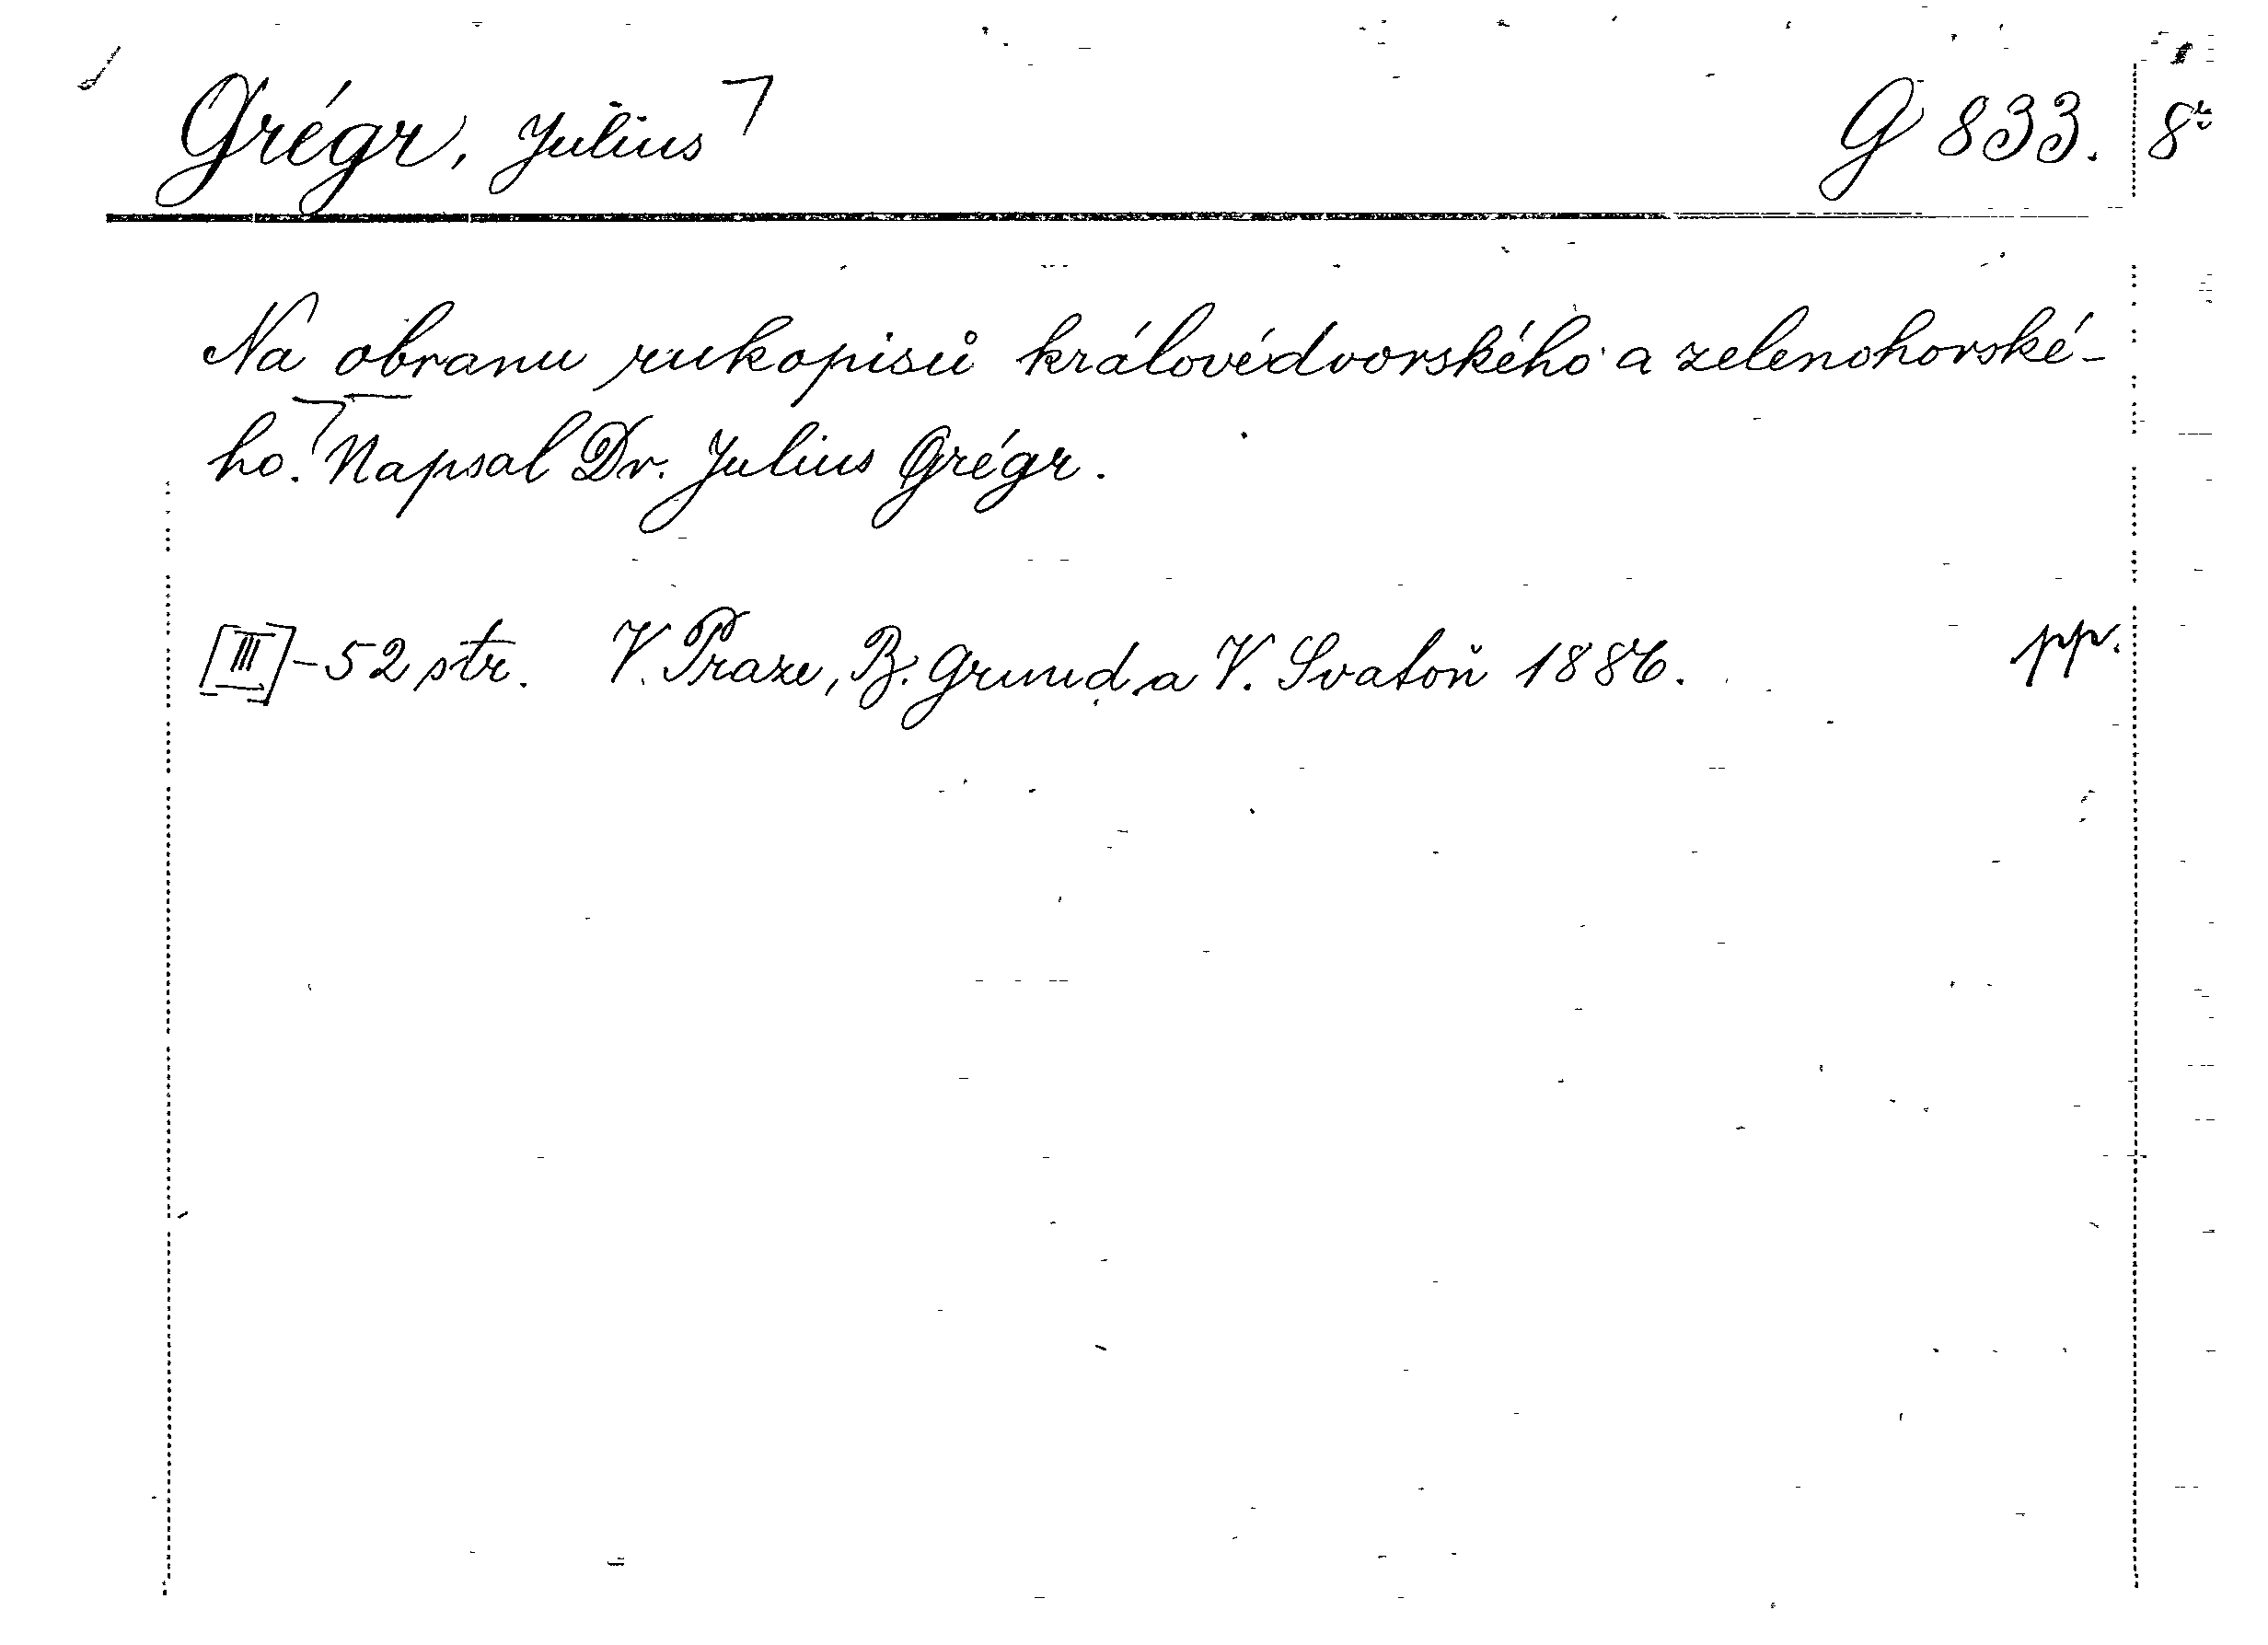 Grégr, Julius G 833. 8º
Na obranu rukopisů královédvorského a zelenohorské-
ho. Napsal Dr. Julius Grégr.
[III]-52 str. V Praze, B. Grund a V. Svatoň 1886. pp.